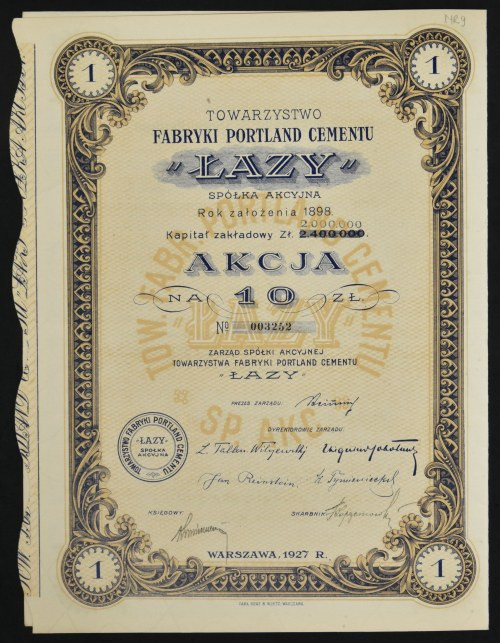 MR9
1
1
TOWARZYSTWO
FABRYKI PORTLAND CEMENTU
„ŁAZY”
SPÓŁKA AKCYJNA
Rok założenia 1898.
2.000.000
Kapitał zakładowy Zł. 2.400.000.
AKCJA
NA 10 ZŁ
No 003252
ZARZĄD SPÓŁKI AKCYJNEJ
TOWARZYSTWA FABRYKI PORTLAND CEMENTU
„ŁAZY”
TOW. FABR. PORTLAND CEMENTU
„ŁAZY”
SP. AKC.
PREZES ZARZĄDU:
DYREKTOROWIE ZARZĄDU:
TOWARZYSTWO FABRYKI PORTLAND CEMENTU
„ŁAZY”
SPÓŁKA
AKCYJNA
Jan Bernstein
KSIĘGOWY:
SKARBNIK:
WARSZAWA, 1927 R.
1
1